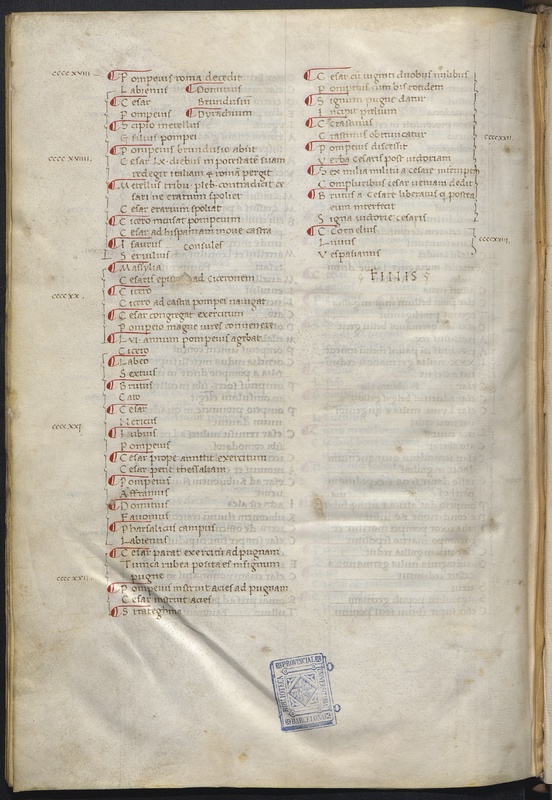 ccccxviii
Pompeius roma decedit
Labienus Domitius
Cesar Brundusiũ
Pompeius Dyrachium
Scipio metellus
G filius pompei
Pompeius brundusio abiit
ccccxviiii
Cesar lx diebus in potestate suam
redegit italiam & romã pergit
Metellus tribu pleb contradicit ce
sari ne erarium spoliet
Cesar erarium spoliat
Cicero incusat pompeium
Cesar ad hispaniam mouet castra
Isauricus consules
Seruilius
Massylia
Cesaris ad ciceronem
Cicero
ccccxx
Cicero ad castra pompei nauigat
Cesar congregat exercitum
Pompeio magne uires conuenere
Lvi annum pompeius agebat
Cicero
Labeo
Sextius
Brutus
Cato
Cesar
ccccxxi
Pompeius
Cesar prope amittit exercitum
Cesar petit thessaliam
Pompeius
Affranius
Domitius
Fauonius
Pharsalicus campus
Labienus
Cesar parat exercitũ ad pugnam
Tunica rubea posita est in signum
pugne
ccccxxii
Pompeius instruit acies ad pugnam
Cesar instruit acies
Cesar cũ uiginti duobus milibus
Pompeius cum bis totidem
Signum pugne datur
Incipit prelium
Crastinus
Crastinus obtruncatur
ccccxxii
Pompeius discessit
Verba Cesaris post uictoriam
Sex milia militũ a cesare
Compluribus cesar ueniam dedit
Brutus a Cesare liberatus & postea
eum interfecit
Signa uictorie cesaris
Cornelius
ccccxxiii
Liuius
Vespasianus
FINIS
BIBLIOTECA PROVINCIAL UNIVERSITARIA BARCELONA